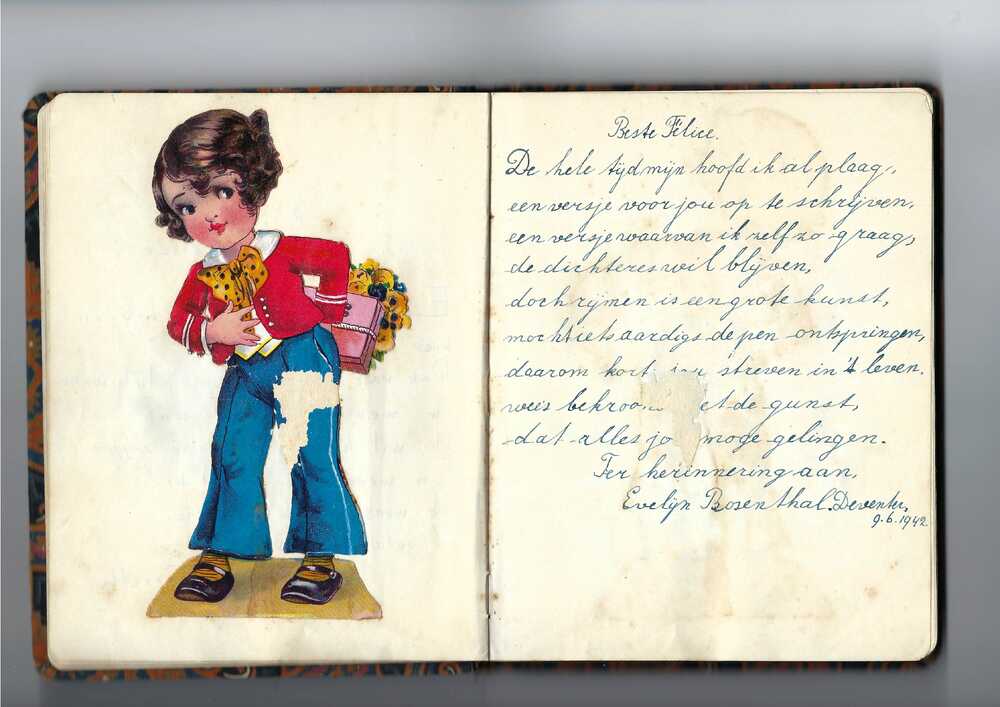 Beste Félice.
De hele tijd mijn hoofd ik al plaag,
een versje voor jou op te schrijven,
een versje waarvan ik zelf zo graag,
de dichteres wil blijven,
doch rijmen is een grote kunst,
mocht iets aardigs de pen ontspringen,
daarom kort streven in 't leven.
weis bekroo et de gunst,
dat alles jo moge gelingen.
Ter herinnering aan,
Evelijn Rosenthal. Deventer,
9.6.1942